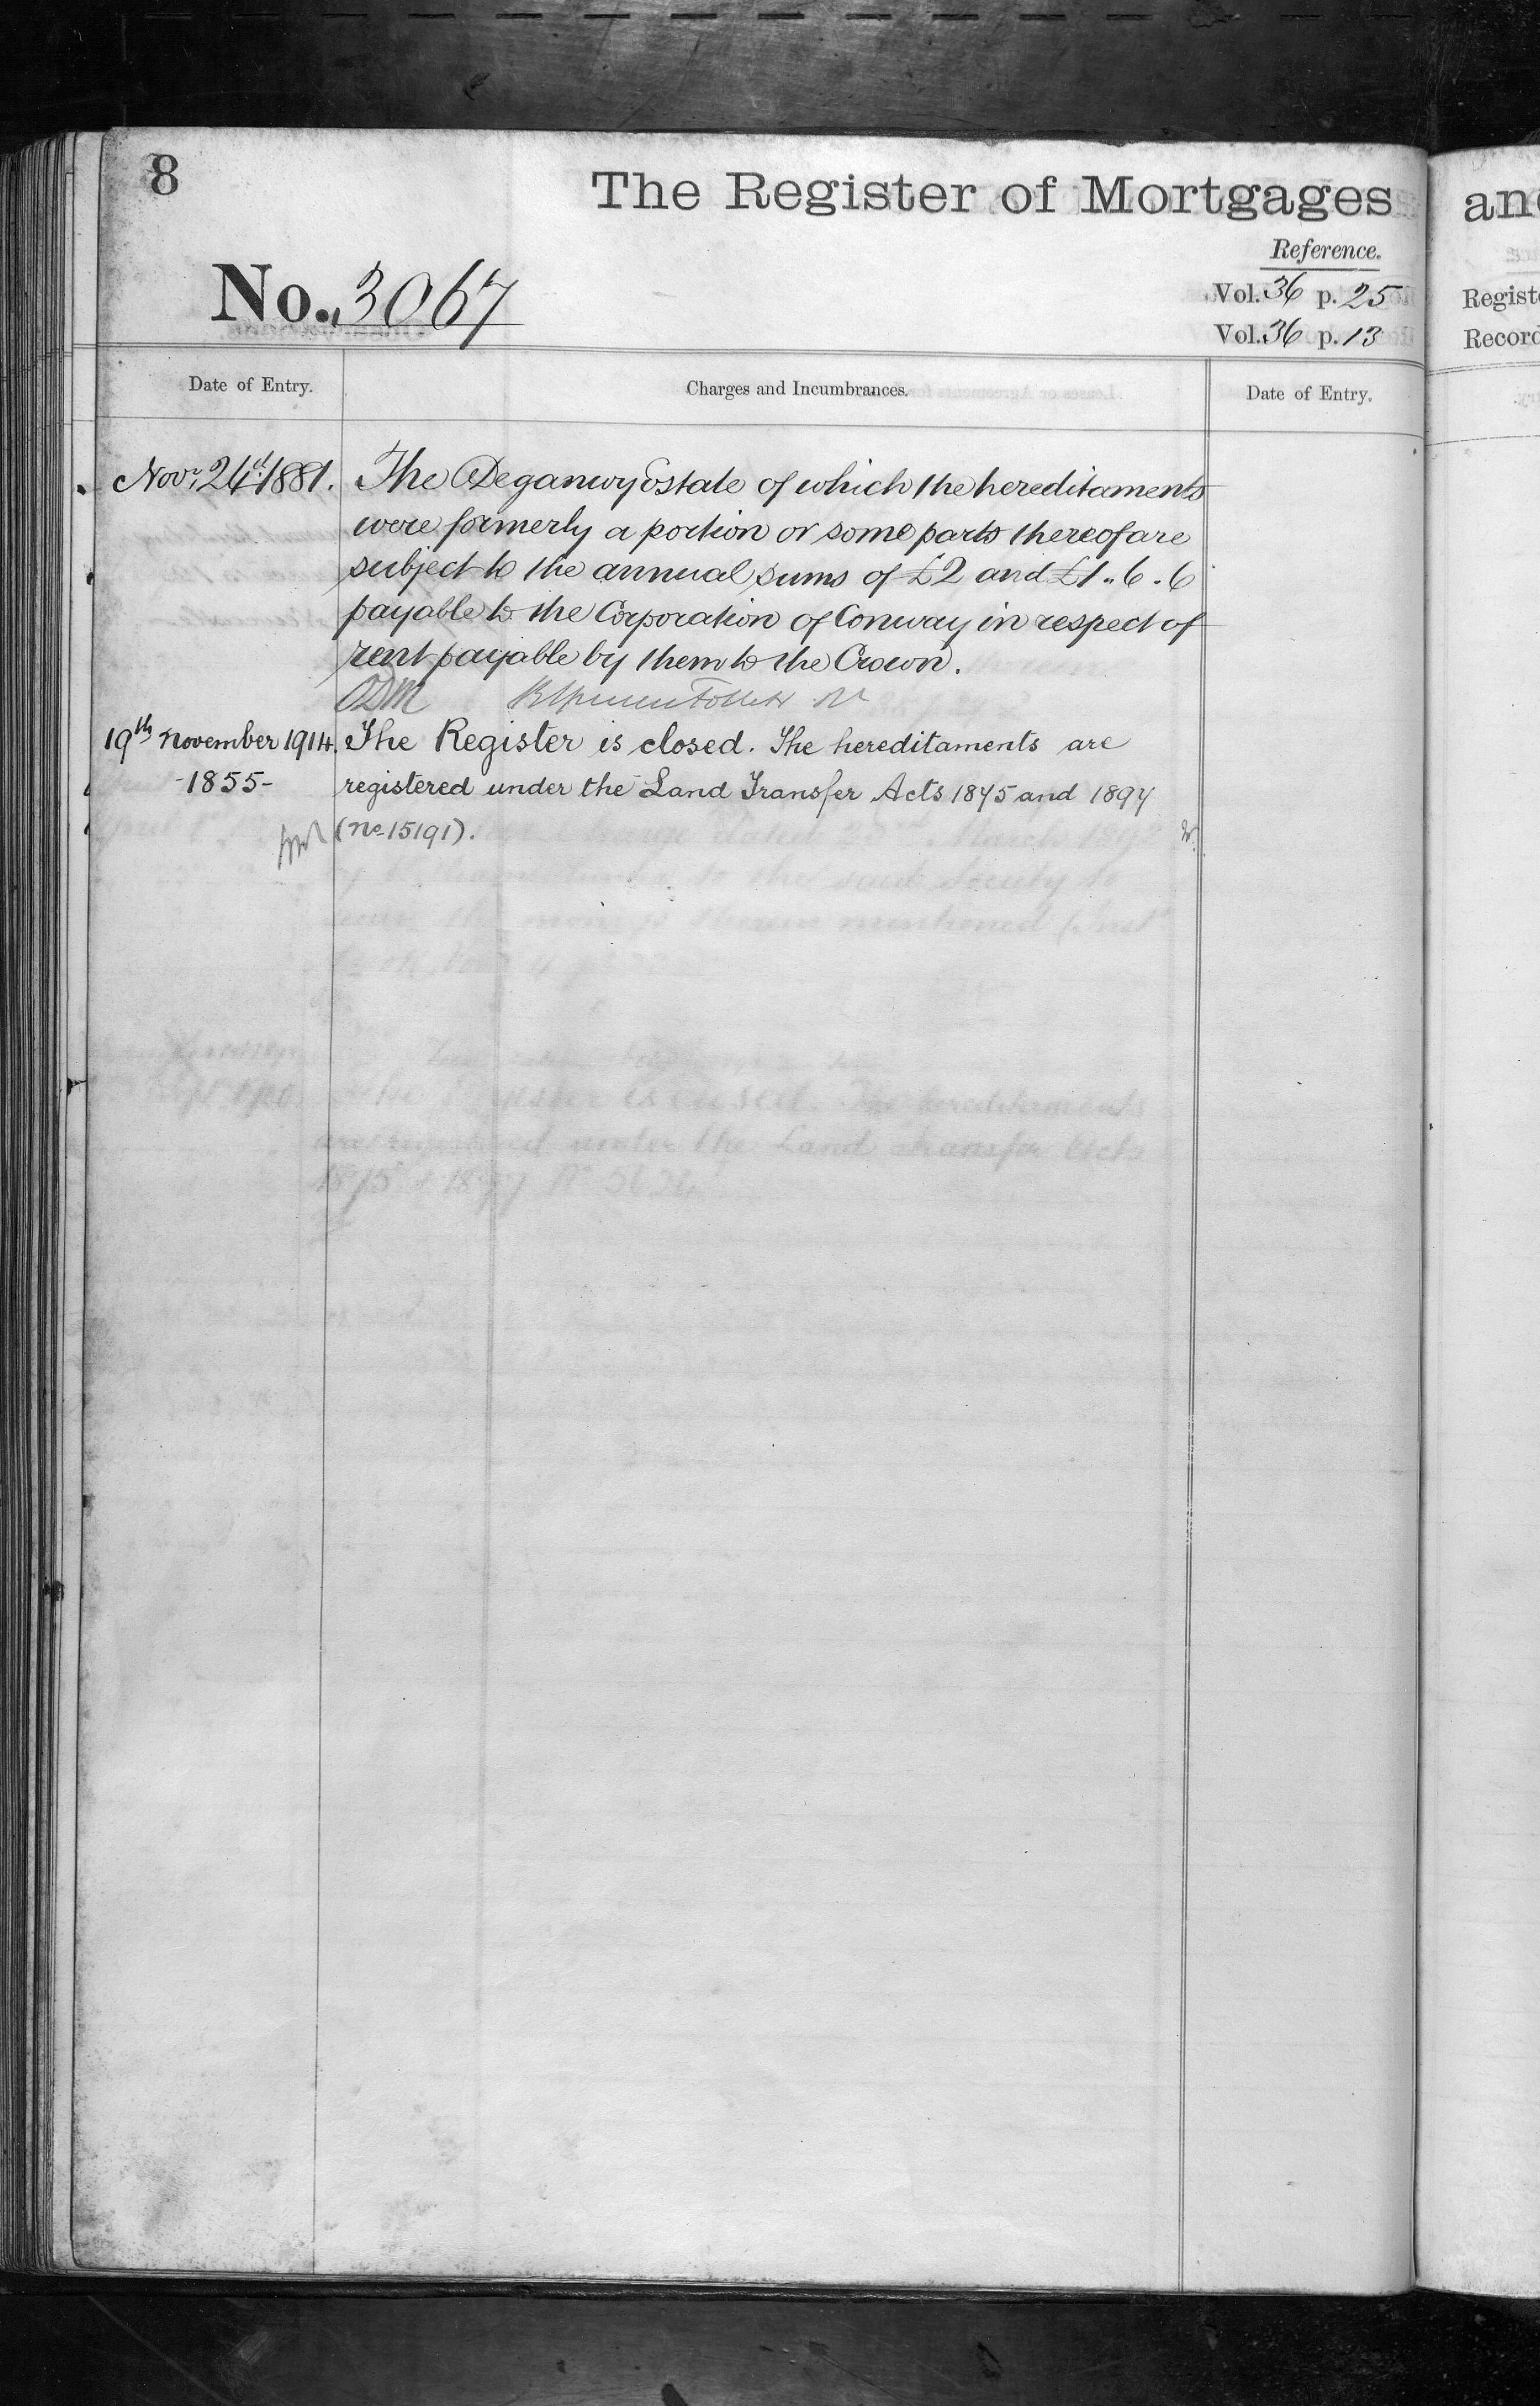 8
The Register of Mortgages
and
Reference.
No. 3067
Vol. 36 p. 25
Vol. 36 p. 13
Date of Entry.
Charges and Incumbrances.
Date of Entry.
Novr. 1881. The Deganwy Estate of which the hereditaments
were formerly a portion or some parts thereof are
subject to the annual sums of £2 and £1..6.6
payable to the Corporation of Conway in respect of
rent payable by them to the Crown.
ODM
19th November 1914. The Register is closed. The hereditaments are
-1855- registered under the Land Transfer Acts 1875 and 1897
(No 15191).